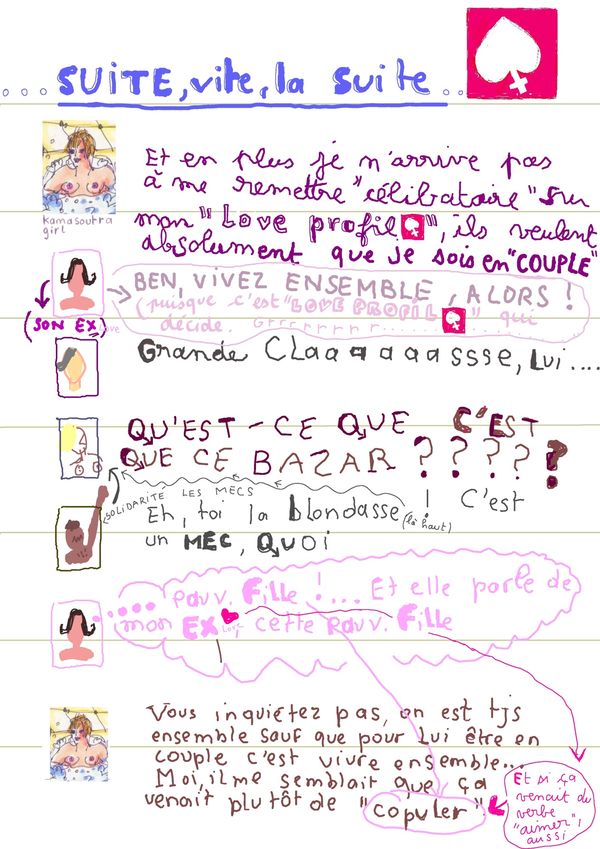 ...SUITE, vite, la suite...
Et en plus je n'arrive pas
à me remettre "célibataire" sur
mon "Love profil", ils veulent
absolument que je sois en "COUPLE"
kamasoutra
girl
BEN, VIVEZ ENSEMBLE, ALORS !
(puisque c'est "LOVE PROFIL" qui
décide. Grrrrrrrr......
(SON EX Love
Grande Claaaaaassse, Lui....
QU'EST-CE QUE C'EST
QUE CE BAZAR ?????
SOLIDARITÉ LES MECS
Eh, toi la blondasse (là haut) ! C'est
un MEC, QUOI
..... pauv. Fille !... Et elle parle de
mon EX Love, cette pauv. Fille
Vous inquiétez pas, on est tjs
ensemble sauf que pour lui être en
couple c'est vivre ensemble...
Moi, il me semblait que ça
venait plutôt de "copuler"
Et si ça
venait du
verbe
"aimer" !
aussi